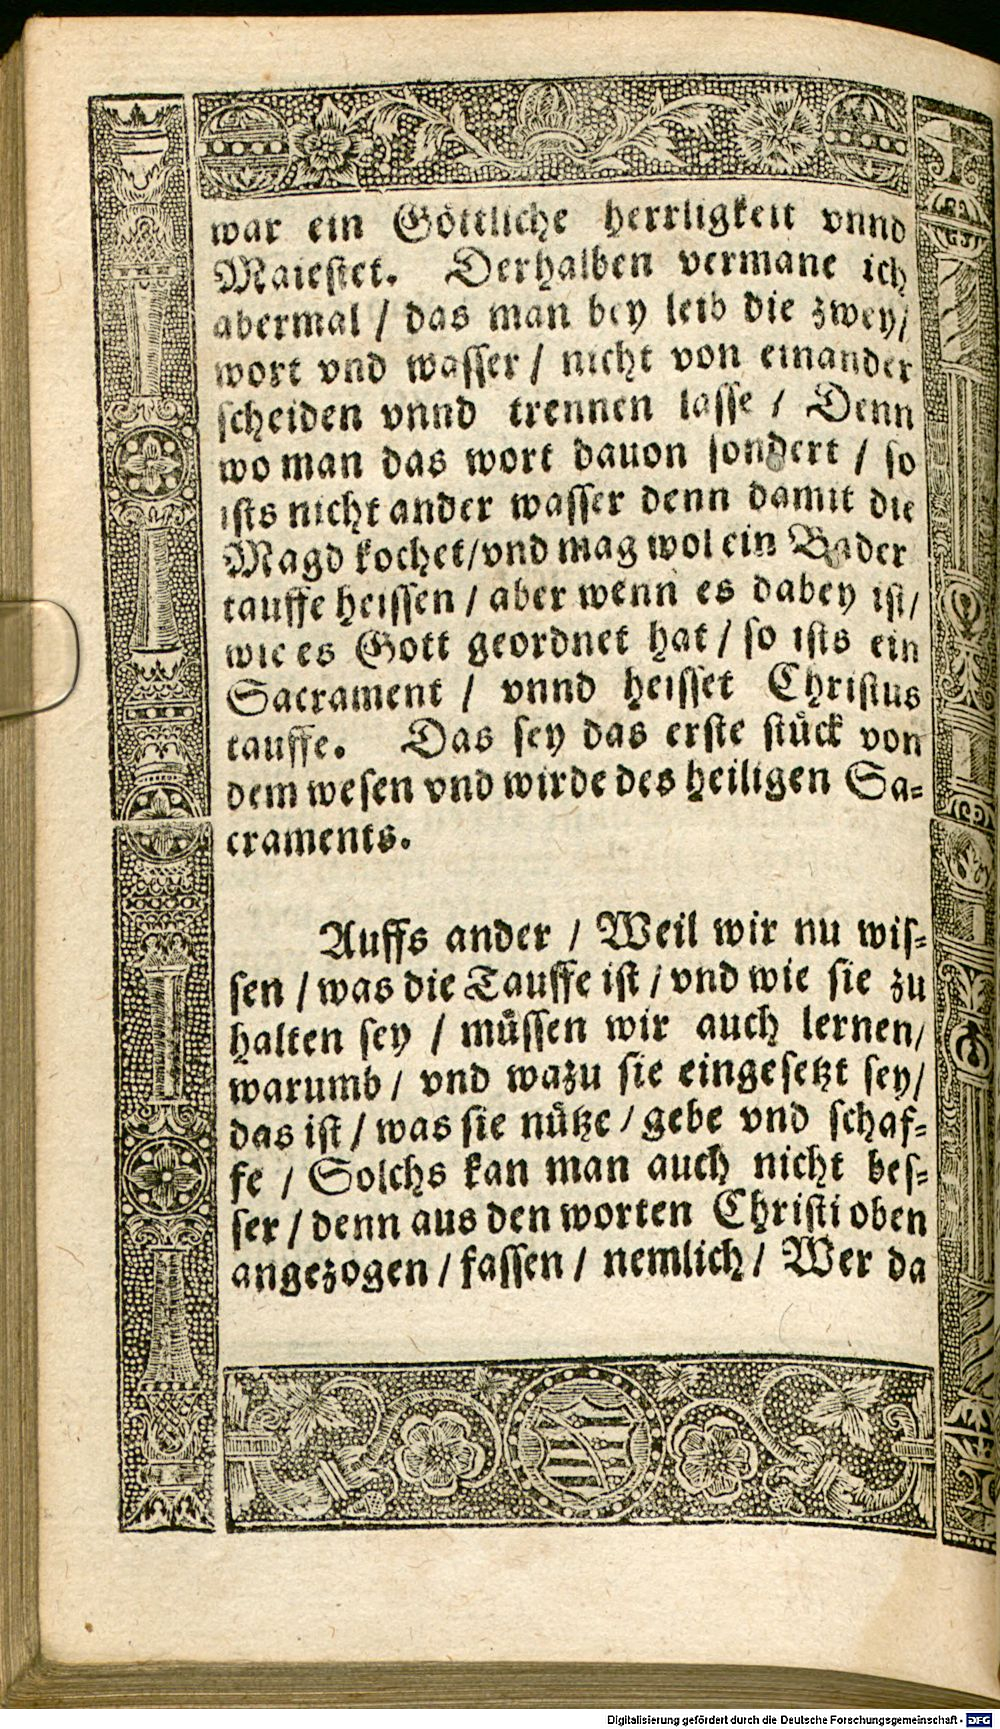 war ein Göttliche herrligkeit vnnd
Maiestet. Derhalben vermane ich
abermal / das man bey leib die zwey /
wort vnd wasser / nicht von einander
scheiden vnnd trennen lasse / Denn
wo man das wort dauon sondert / so
ists nicht ander wasser denn damit die
Magd kochet / vnd mag wol ein Bader
tauffe heissen / aber wenn es dabey ist /
wie es Gott geordnet hat / so ists ein
Sacrament / vnnd heisset Christus
tauffe. Das sey das erste stück von
dem wesen vnd wirde des heiligen Sa=
craments.
Auffs ander / Weil wir nu wis=
sen / was die Tauffe ist / vnd wie sie zu
halten sey / müssen wir auch lernen /
warumb / vnd wazu sie eingesetzt sey /
das ist / was sie nütze / gebe vnd schaf=
fe / Solchs kan man auch nicht bes=
ser / denn aus den worten Christi oben
angezogen / fassen / nemlich / Wer da
Digitalisierung gefördert durch die Deutsche Forschungsgemeinschaft - DFG